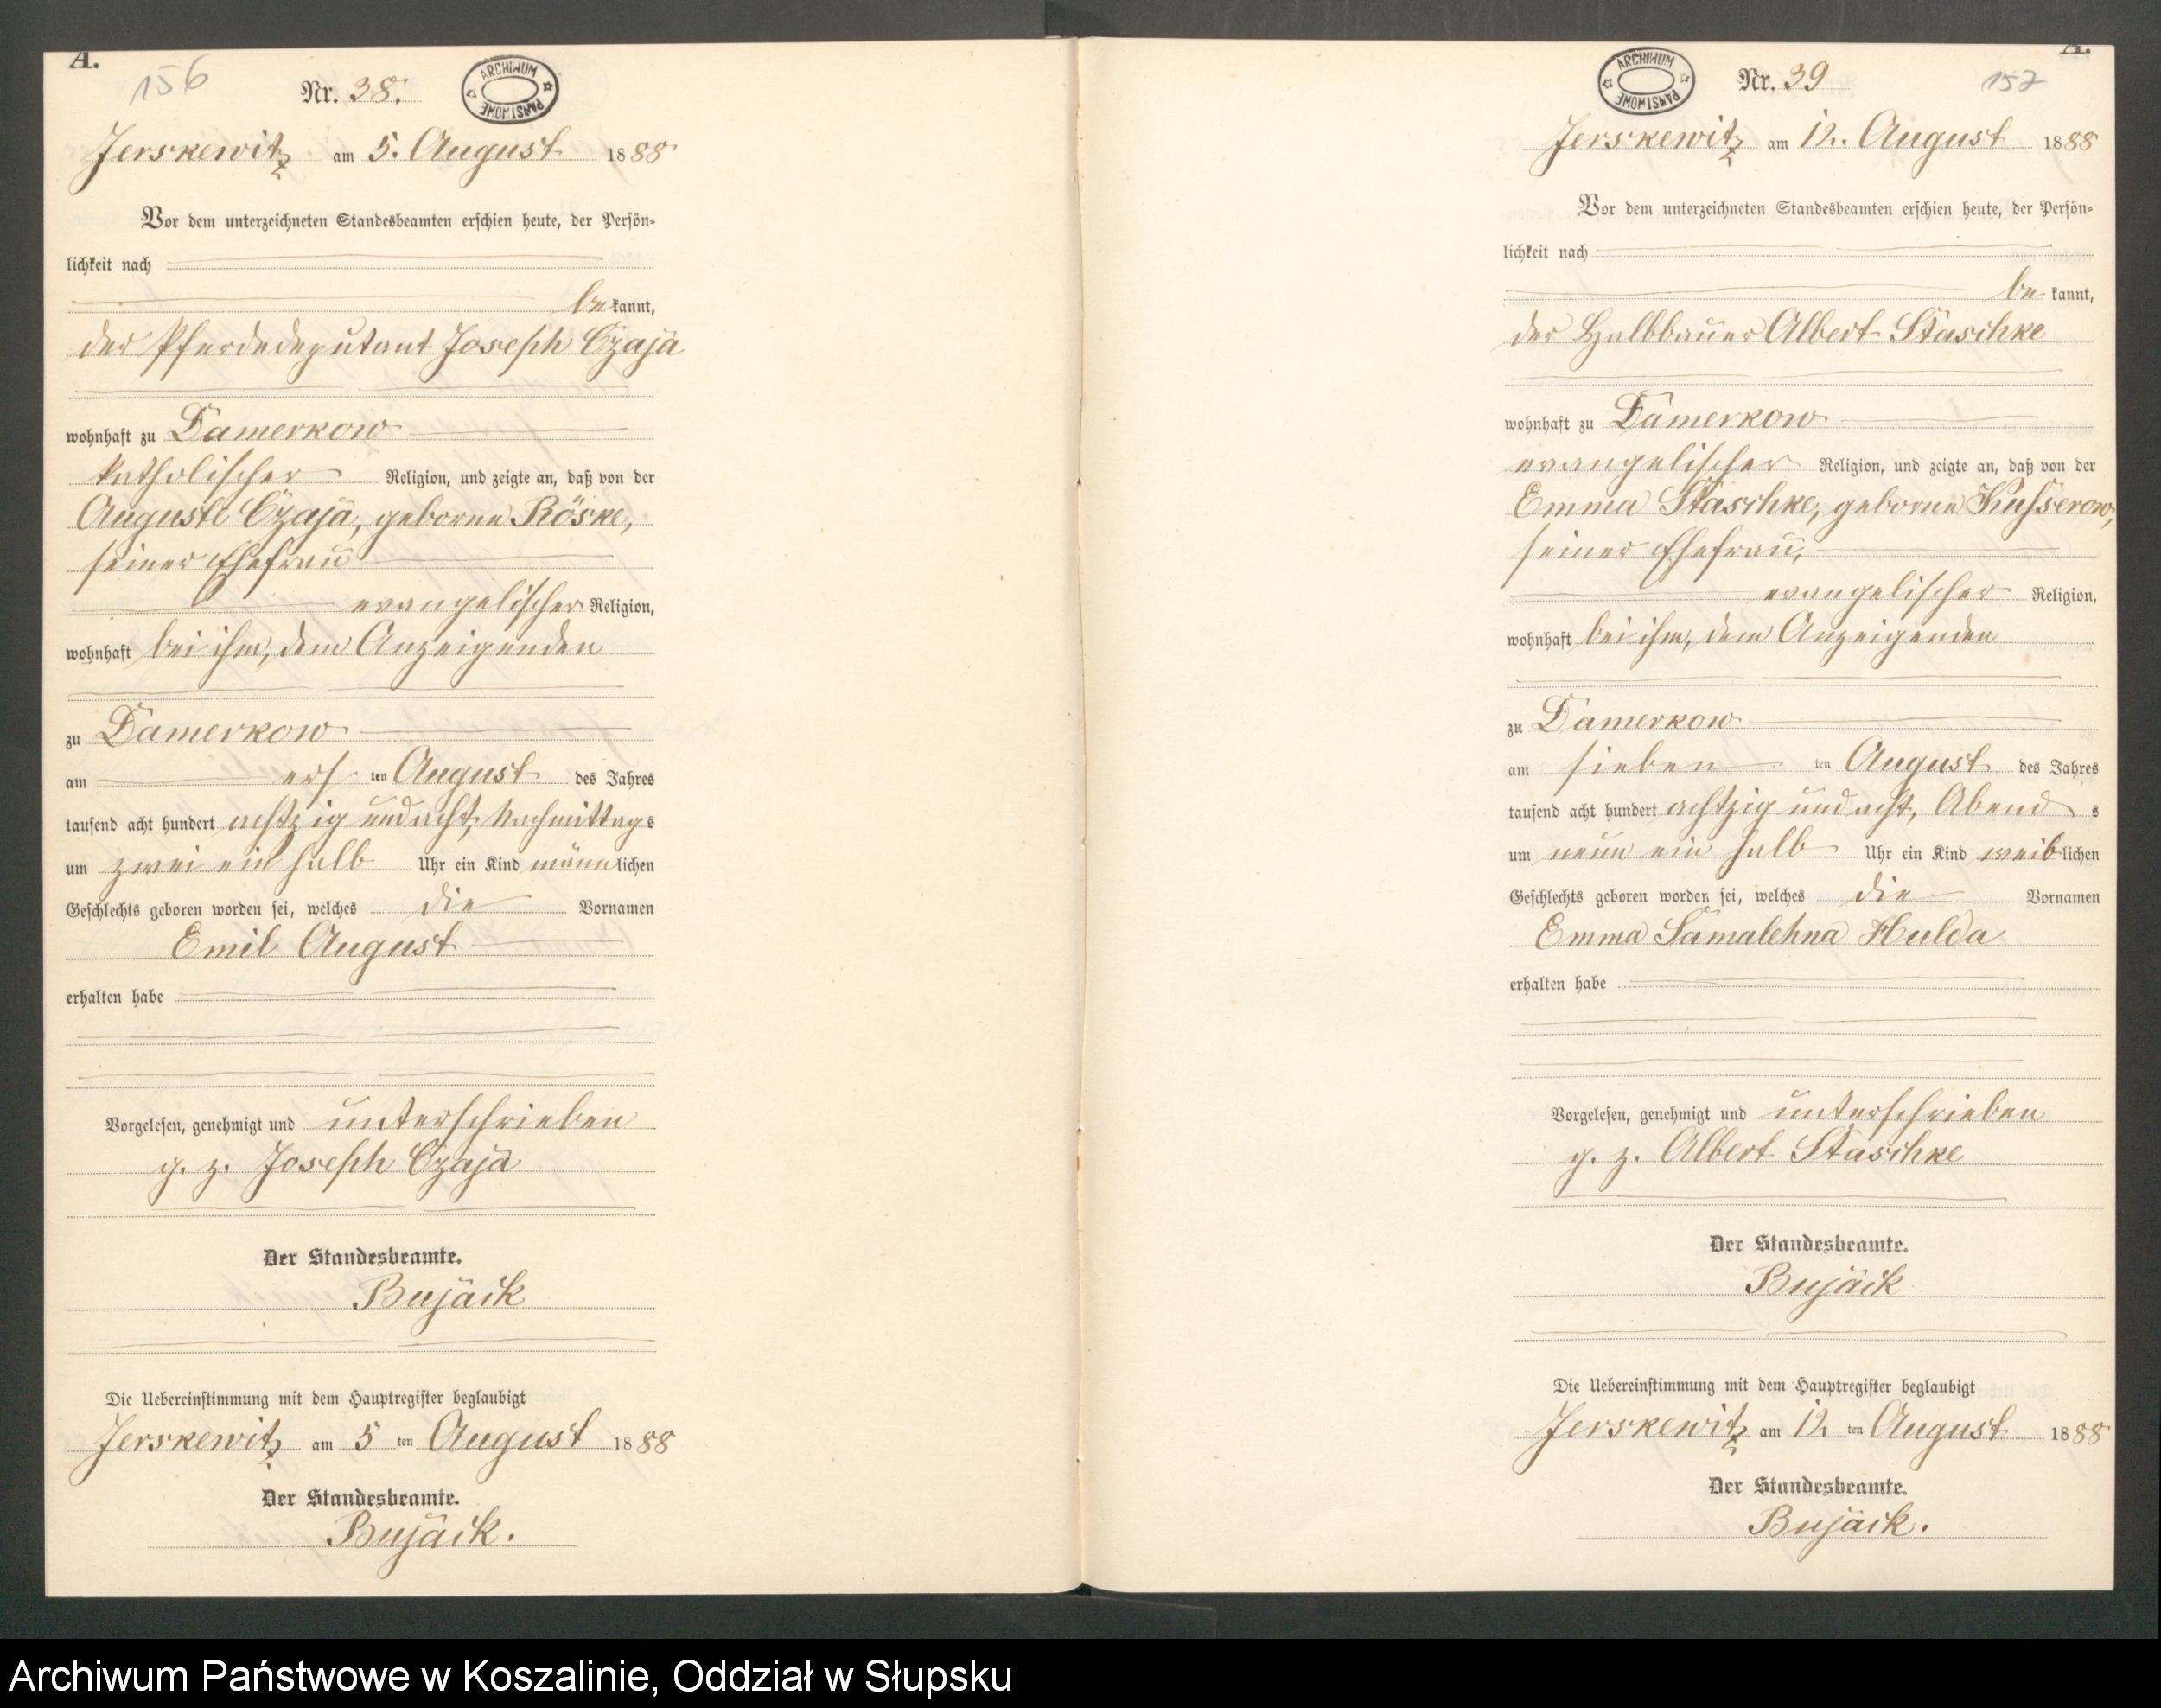 A.
156
Nr. 38.
ARCHIWUM PAŃSTWOWE
Jerskewitz am 5. August 1888
Vor dem unterzeichneten Standesbeamten erschien heute, der Persön-
lichkeit nach
be kannt,
der Pferdedeputant Joseph Czaja
wohnhaft zu Damerkow
katholischer Religion, und zeigte an, daß von der
Auguste Czaja, geborne Röske,
seiner Ehefrau
evangelischer Religion,
wohnhaft bei ihm, dem Anzeigenden
zu Damerkow
am ers ten August des Jahres
tausend acht hundert achtzig und acht, Nachmittags
um zwei ein halb Uhr ein Kind männlichen
Geschlechts geboren worden sei, welches die Vornamen
Emil August
erhalten habe
Vorgelesen, genehmigt und unterschrieben
g. z. Joseph Czaja
Der Standesbeamte.
Bujack
Die Uebereinstimmung mit dem Hauptregister beglaubigt
Jerskewitz am 5 ten August 1888
Der Standesbeamte.
Bujack.
A.
ARCHIWUM PAŃSTWOWE
Nr. 39
157
Jerskewitz am 12. August 1888
Vor dem unterzeichneten Standesbeamten erschien heute, der Persön-
lichkeit nach
be kannt,
der Halbbauer Albert Staschke
wohnhaft zu Damerkow
evangelischer Religion, und zeigte an, daß von der
Emma Staschke, geborne Kusserow,
seiner Ehefrau,
evangelischer Religion,
wohnhaft bei ihm, dem Anzeigenden
zu Damerkow
am sieben ten August des Jahres
tausend acht hundert achtzig und acht, Abend s
um neun ein halb Uhr ein Kind weiblichen
Geschlechts geboren worden sei, welches die Vornamen
Emma Samalehna Hulda
erhalten habe
Vorgelesen, genehmigt und unterschrieben
g. z. Albert Staschke
Der Standesbeamte.
Bujack
Die Uebereinstimmung mit dem Hauptregister beglaubigt
Jerskewitz am 12 ten August 1888
Der Standesbeamte.
Bujack.
Archiwum Państwowe w Koszalinie, Oddział w Słupsku